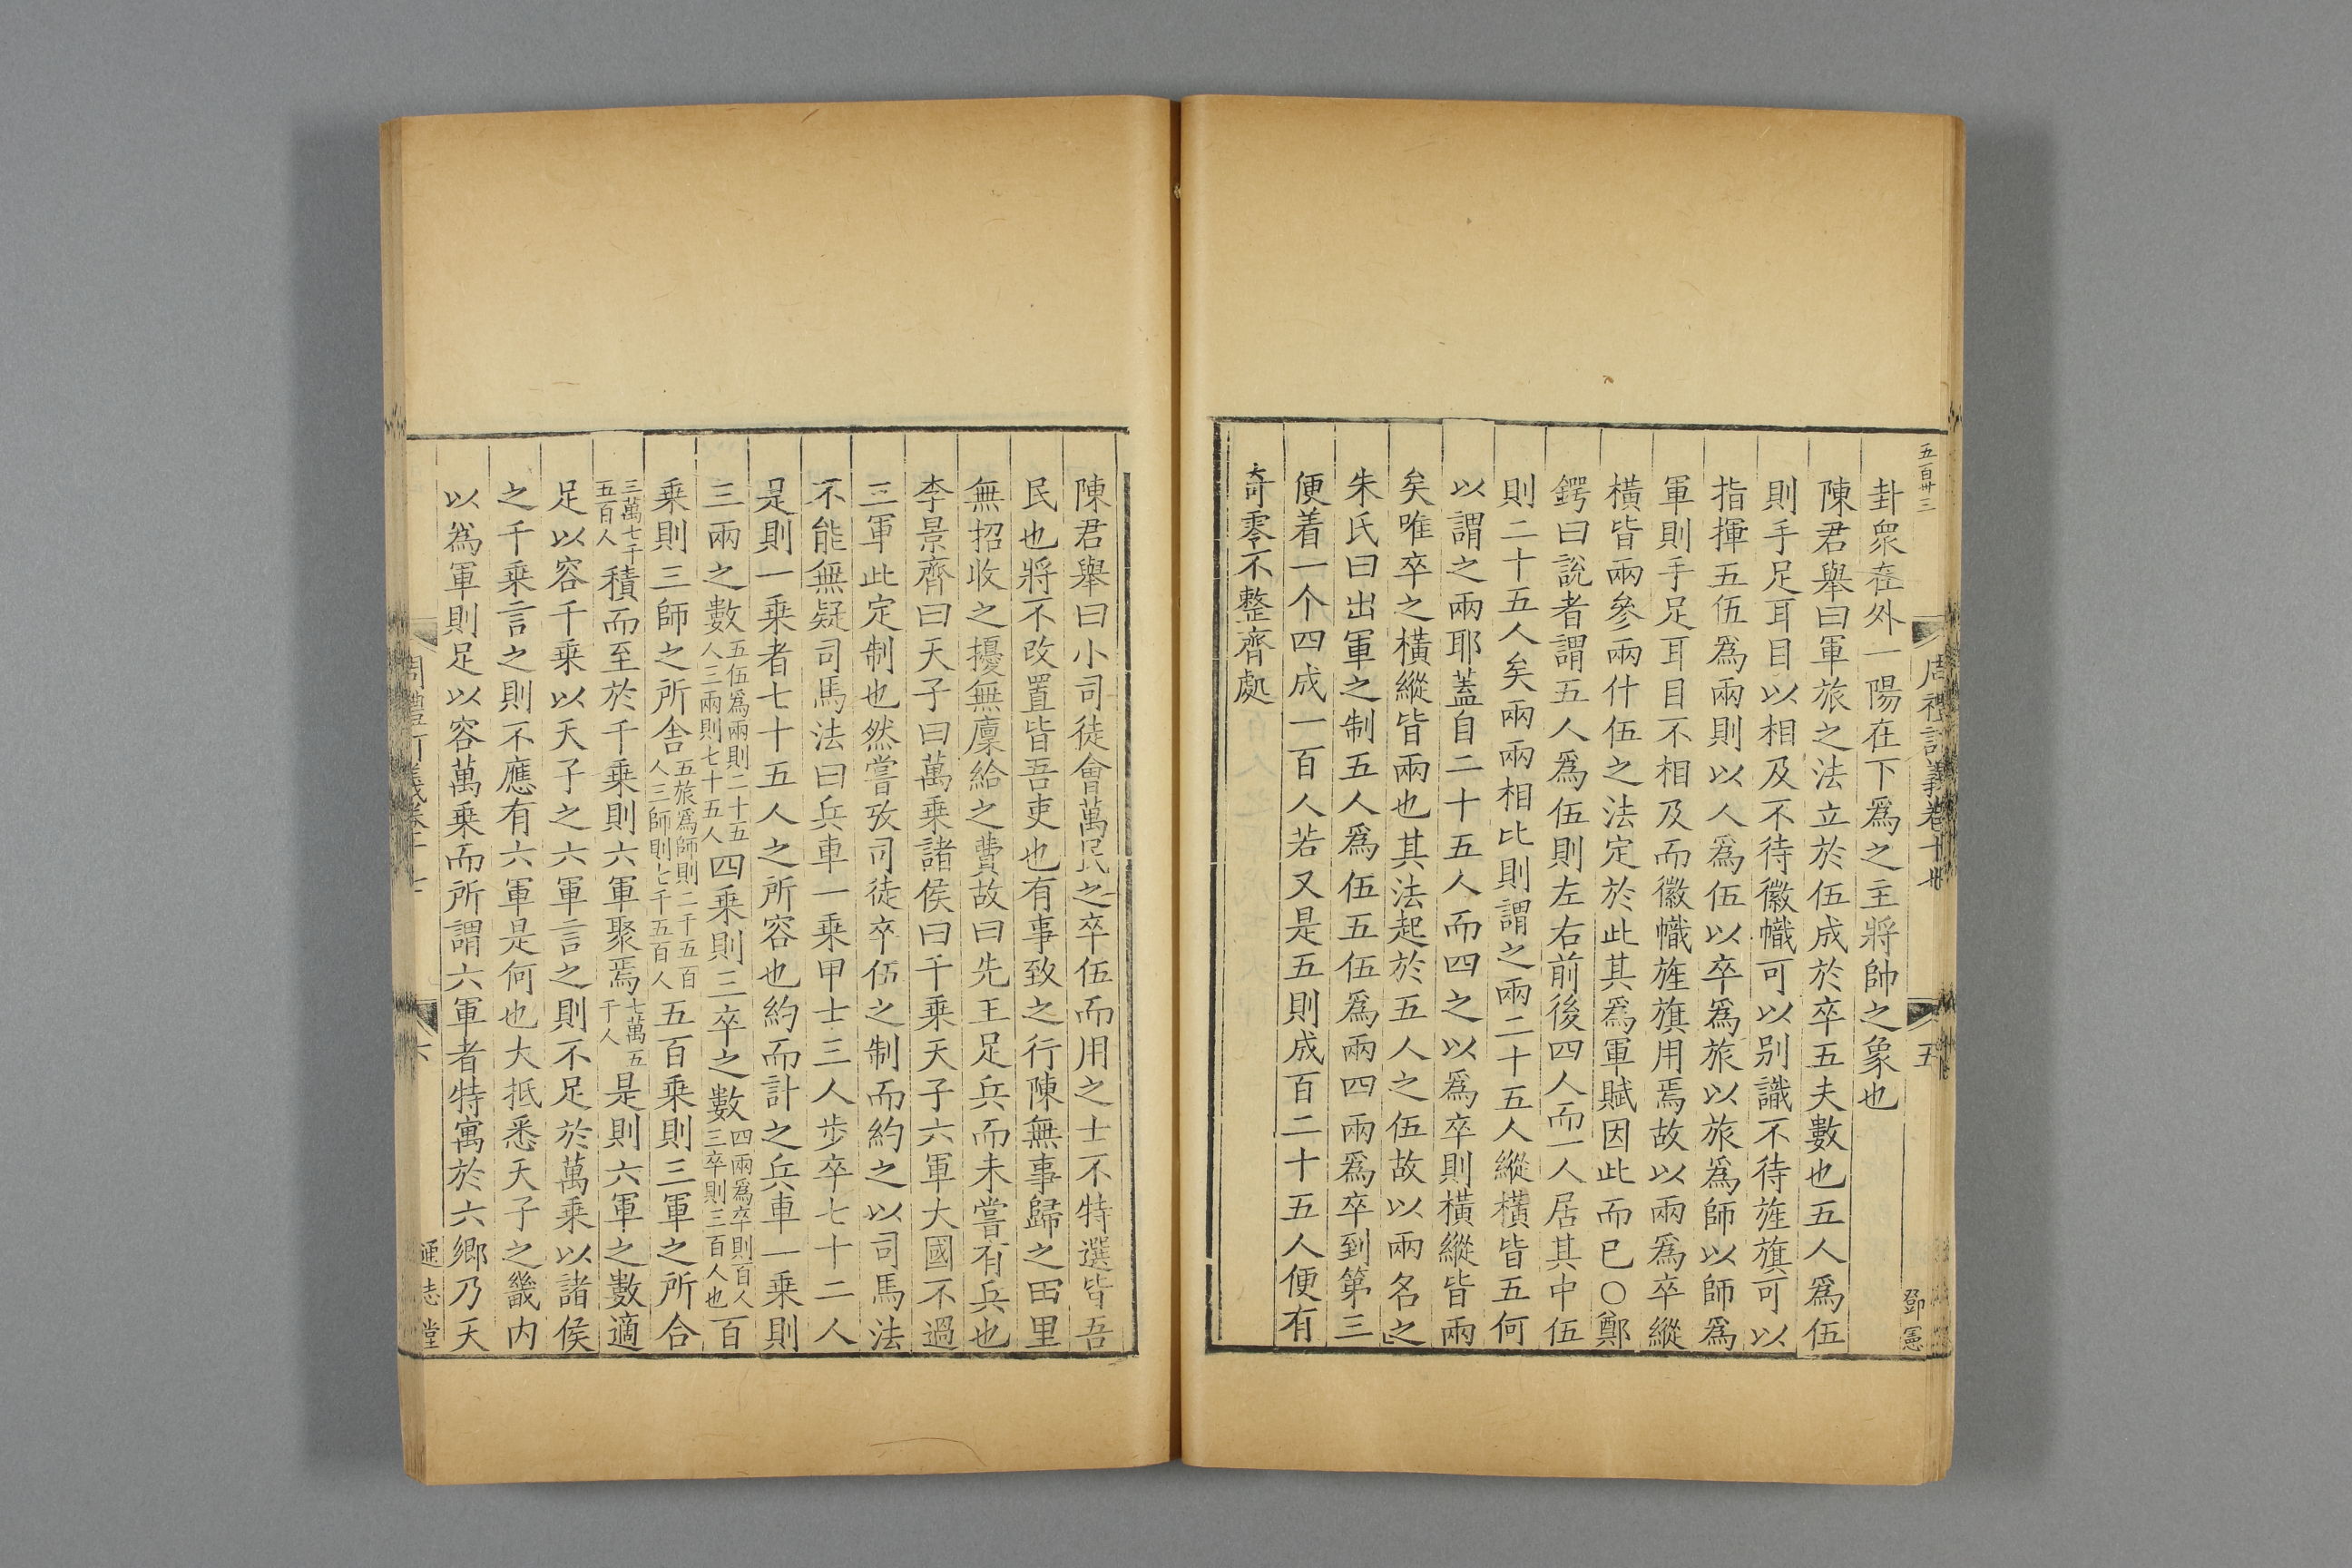 五百卅三
卦衆在外一陽在下爲之主將帥之象也
陳君舉曰軍旅之法立於伍成於卒五夫數也五人爲伍
則手足耳目以相及不待徽幟可以别識不待旌旗可以
指揮五伍爲兩則以人爲伍以卒爲旅以旅爲師以師爲
軍則手足耳目不相及而徽幟旌旗用焉故以兩爲卒縱
橫皆兩參兩什伍之法定於此其爲軍賦因此而已○鄭
鍔曰説者謂五人爲伍則左右前後四人而一人居其中伍
則二十五人矣兩兩相比則謂之兩二十五人縱橫皆五何
以謂之兩耶蓋自二十五人而四之以爲卒則橫縱皆兩
矣唯卒之橫縱皆兩也其法起於五人之伍故以兩名之
朱氏曰出軍之制五人爲伍五伍爲兩四兩爲卒到第三
便着一个四成一百人若又是五則成百二十五人便有
奇零不整齊處
周禮訂義卷
五
鄧憲
陳君舉曰小司徒會萬民之卒伍而用之士不特選皆吾
民也將不改置皆吾吏也有事致之行陳無事歸之田里
無招收之擾無廩給之費故曰先王足兵而未嘗有兵也
李景齊曰天子曰萬乘諸侯曰千乘天子六軍大國不過
三軍此定制也然嘗攷司徒卒伍之制而約之以司馬法
不能無疑司馬法曰兵車一乘甲士三人步卒七十二人
是則一乘者七十五人之所容也約而計之兵車一乘則
三兩之數五伍爲兩則二十五人三兩則七十五人四乘則三卒之數四兩爲卒則百人三卒則三百人也百
乘則三師之所舍五旅爲師則二千五百人三師則七千五百人五百乘則三軍之所合
三萬七千五百人積而至於千乘則六軍聚焉七萬五千人是則六軍之數適
足以容千乘以天子之六軍言之則不足於萬乘以諸侯
之千乘言之則不應有六軍是何也大抵悉天子之畿内
以爲軍則足以容萬乘而所謂六軍者特寓於六鄉乃天
六
通志堂